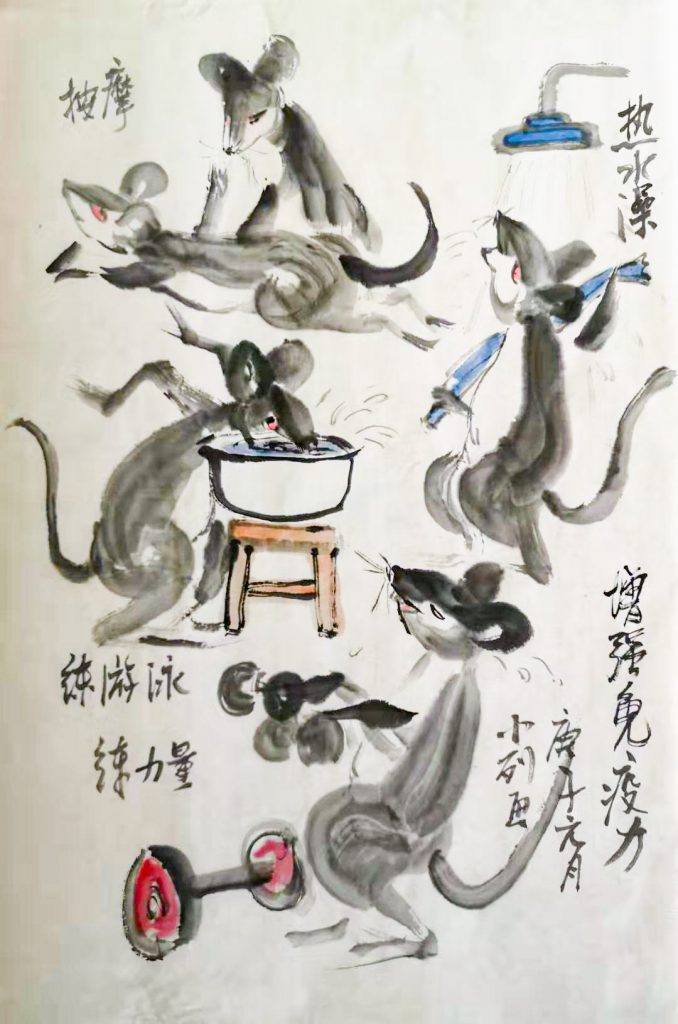 按摩
热水澡
练游泳
练力量
增强免疫力
庚子元月
小列画